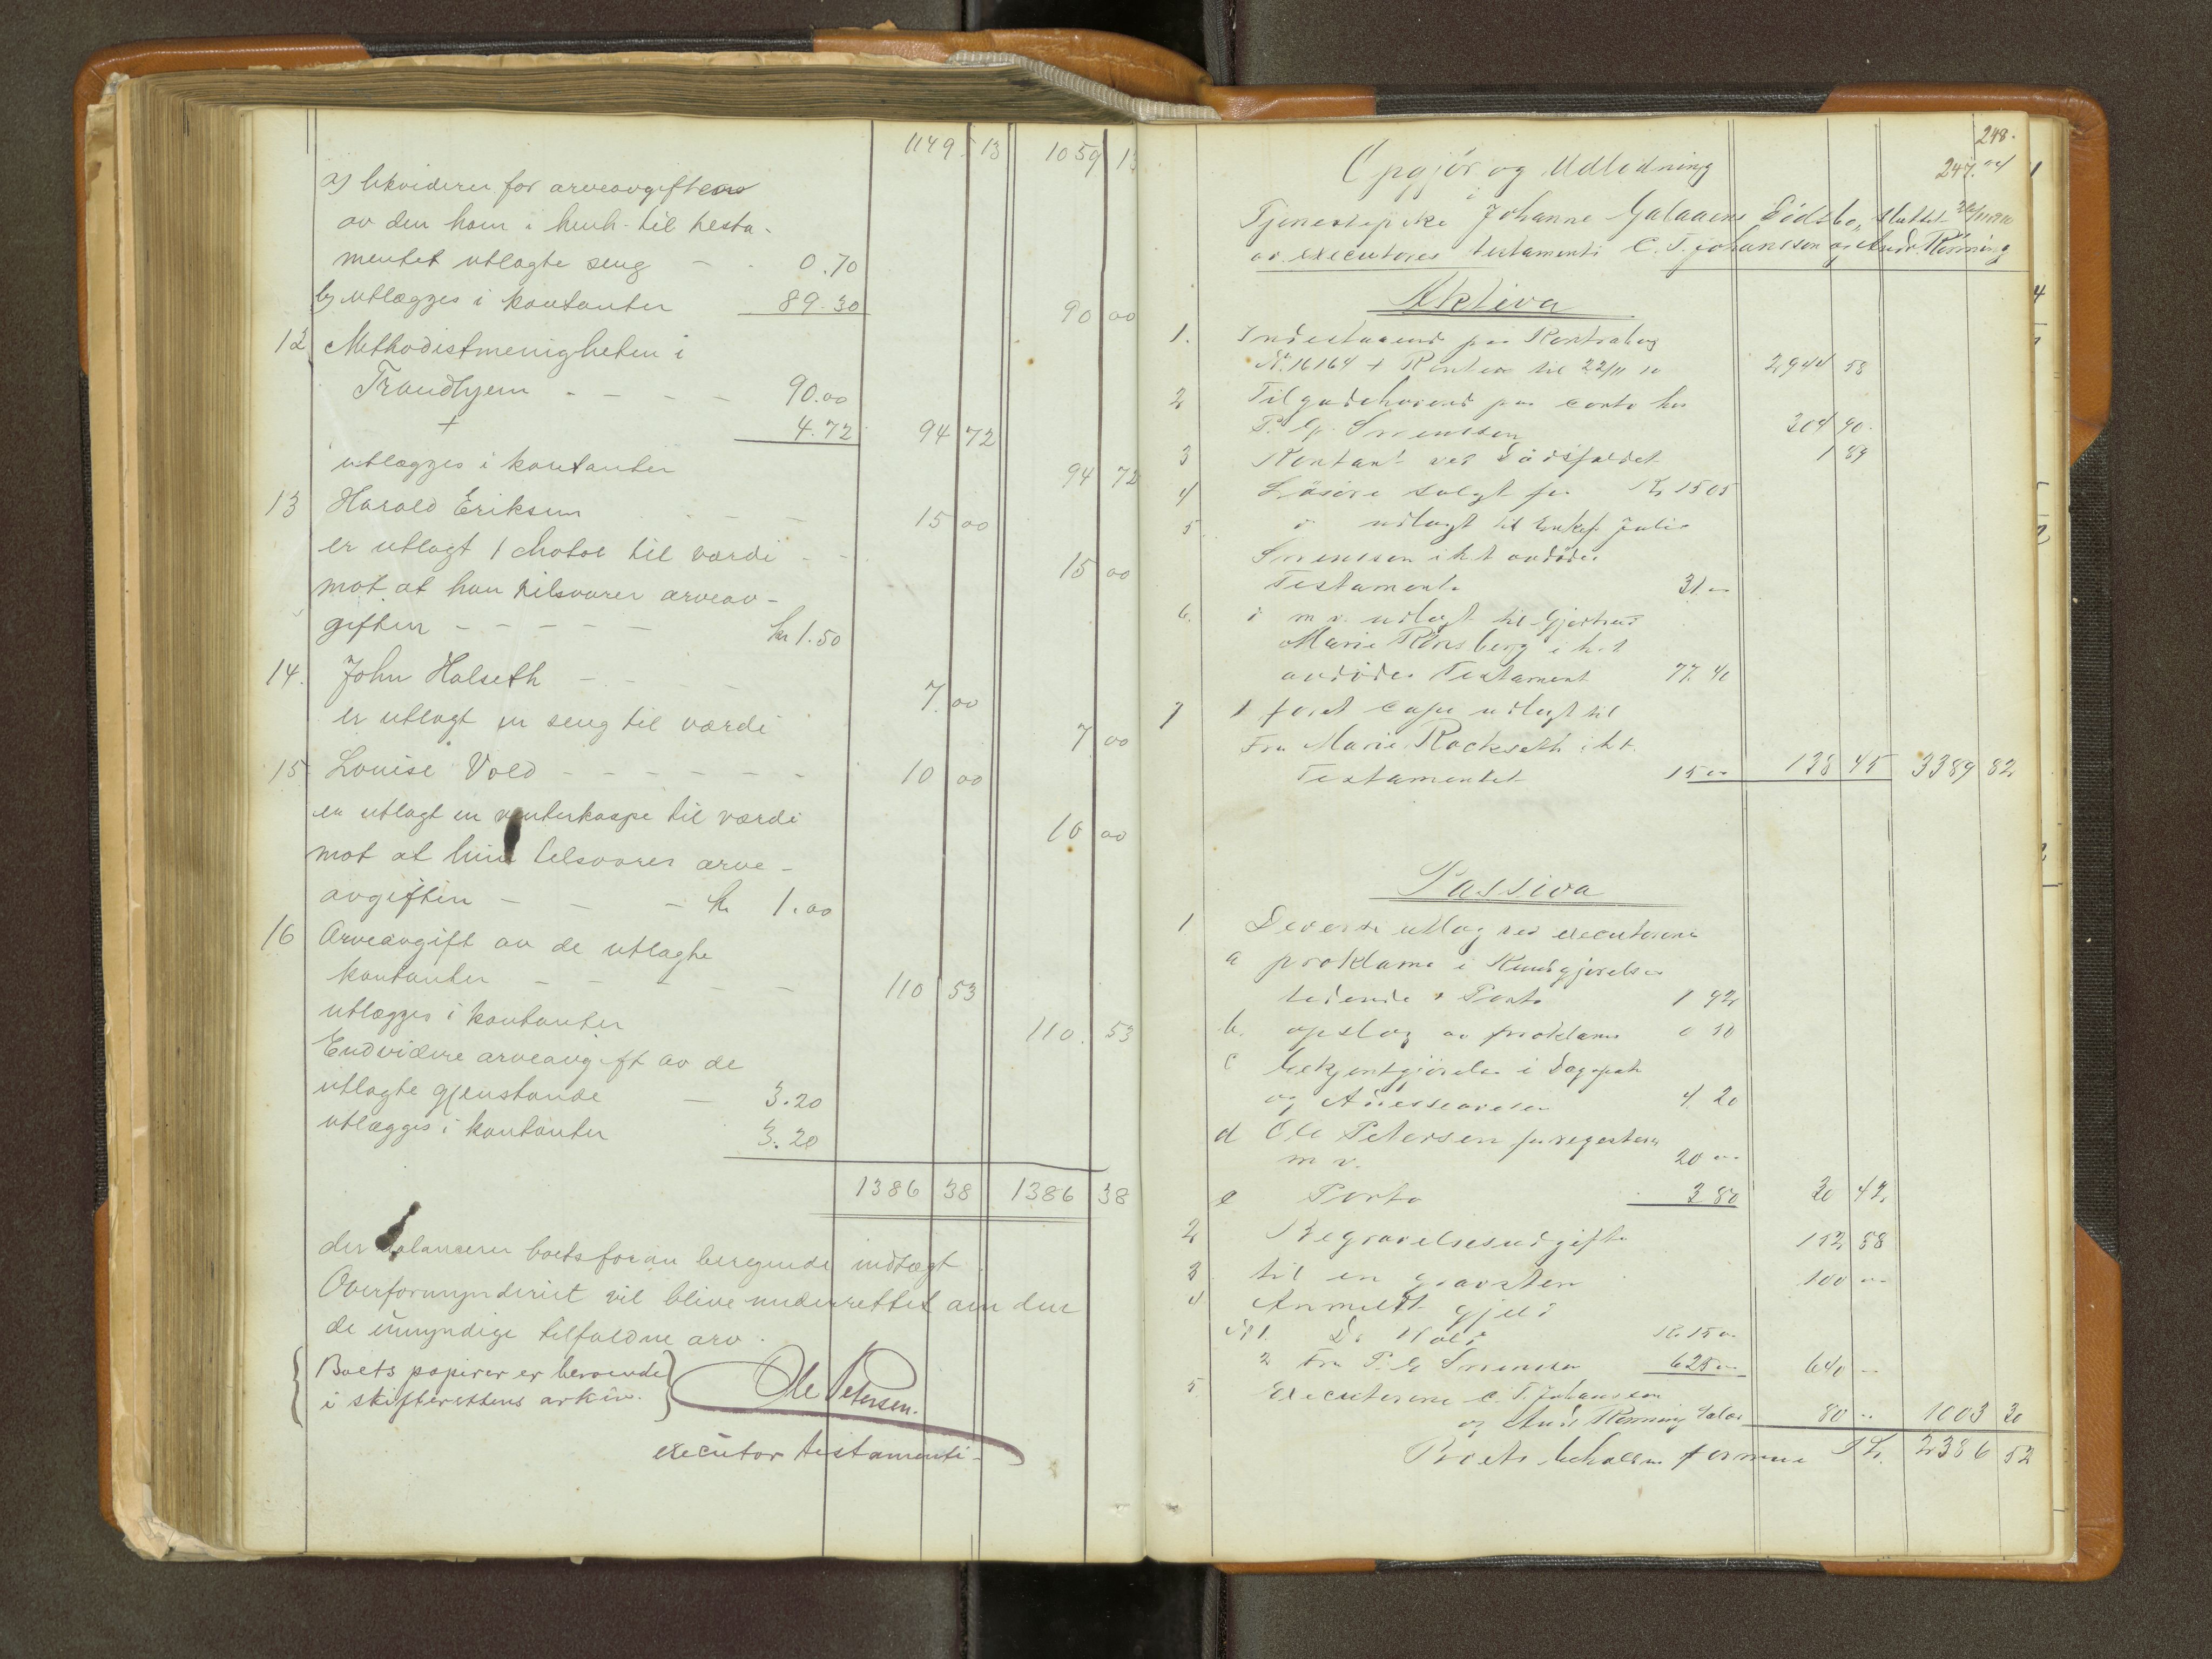 1149 13 1059 13
a) likviderer for arveavgiften
av den ham i henh. til testa-
mentet utlagte seng - - 0.70
b) utlægges i kontanter 89.30 90 00
12 Methodistmenigheten i
Trondhjem - - - - 90.00
+ 4.72 94 72
utlægges i kontanter 94 72
13 Harald Eriksen - - 15 00
er utlagt 1 chatol til værdi - - 15 00
mot at han tilsvarer arveav-
giften - - - - - kr 1.50
14. John Halseth - - - 7 00
er utlagt en seng til værdi 7 00
15 Louise Vold - - - - - - 10 00
er utlagt en vinterkaape til værdi 10 00
mot at hun tilsvarer arve-
avgiften - - - kr 1.00
16 Arveavgift av de utlagte
kontanter - - - - - 110 53
utlægges i kontanter 110. 53
Endvidere arveavgift av de
utlagte gjenstande - 3.20
utlægges i kontanter 3.20
1386 38 1386 38
der balanserer boets foran beregnede indtægt.
Overformynderiet vil blive underrettet om den
de umyndige tilfaldne arv.
Boets papirer er beroende
i skifterettens arkiv.
Ole Petersen.
executor testamenti.
248.
247.
Opgjør og Udlodning
i
Tjenestepike Johanne Dødsbo, sluttet
av executores testamenti C. T. Johansson og Andr. Rønning
Aktiva
1. Indestaaende paa Kontrabog
No. 16164 + Renter til 22/11 10 2944 58
2 Tilgodehavende paa conto hos
P. G. Svensson 304 90
3 Kontant ved Dødsfaldet 1 89
4 Løsøre solgt for Kr 15 05
5. do udlagt til Enkef. Julie
Svensson i h t avdødes
Testamente 31 00
6. do m v. udlagt til Gjertrud
Marie Rønsberg i h. t
avdødes Testament 77 40
7 1 foret cape udlagt til
Fru Marie Rockseth i h t.
Testamentet 15 00 138 45 3389 82
Passiva
1 Diverse utlæg ved executorene
a proklama i Kundgjørelses
tidende + Porto 1 92
b. opslag av proklama 0 50
c bekjentgjørelse i Dagspost
og Adresseavisen 4 20
d Ole Petersen for registrer
m v. 20 00
e Porto 3 80 30 42
2 Begravelsesudgifter 152 88
3 til en gravsten 100 00
4 Anmeldt gjeld
No 1. Dr Kr. 15 00
2 Fru P. G. Svensson 625 00 640 00
5. Executorerne C. T. Johansson
og Andr Rønning Salær 80 00 1003 30
Boets beholdne formue Kr. 2386 52